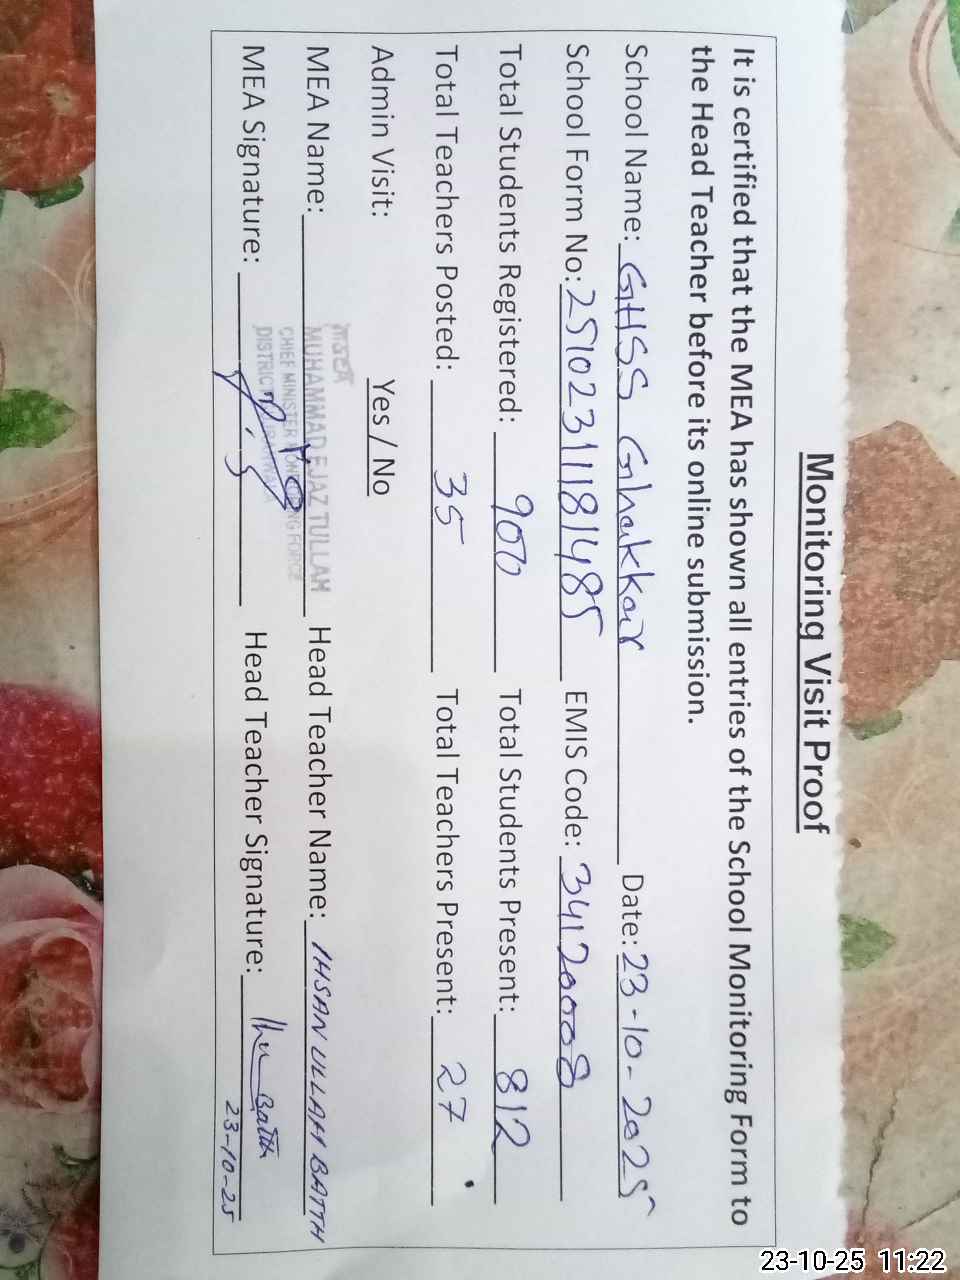 Monitoring Visit Proof
It is certified that the MEA has shown all entries of the School Monitoring Form to
the Head Teacher before its online submission.
School Name: GHSS Ghakkar Date: 23-10-2025
School Form No: 251023111811485 EMIS Code: 34120008
Total Students Registered: 900 Total Students Present: 812
Total Teachers Posted: 35 Total Teachers Present: 27
Admin Visit: Yes / No
MUHAMMAD EJAZ TULLAH
CHIEF MINISTER MONITORING FORCE
DISTRICT
MEA Name: Head Teacher Name: IHSAN ULLAH BATTH
MEA Signature: Head Teacher Signature: Batth
23-10-25
23-10-25 11:22